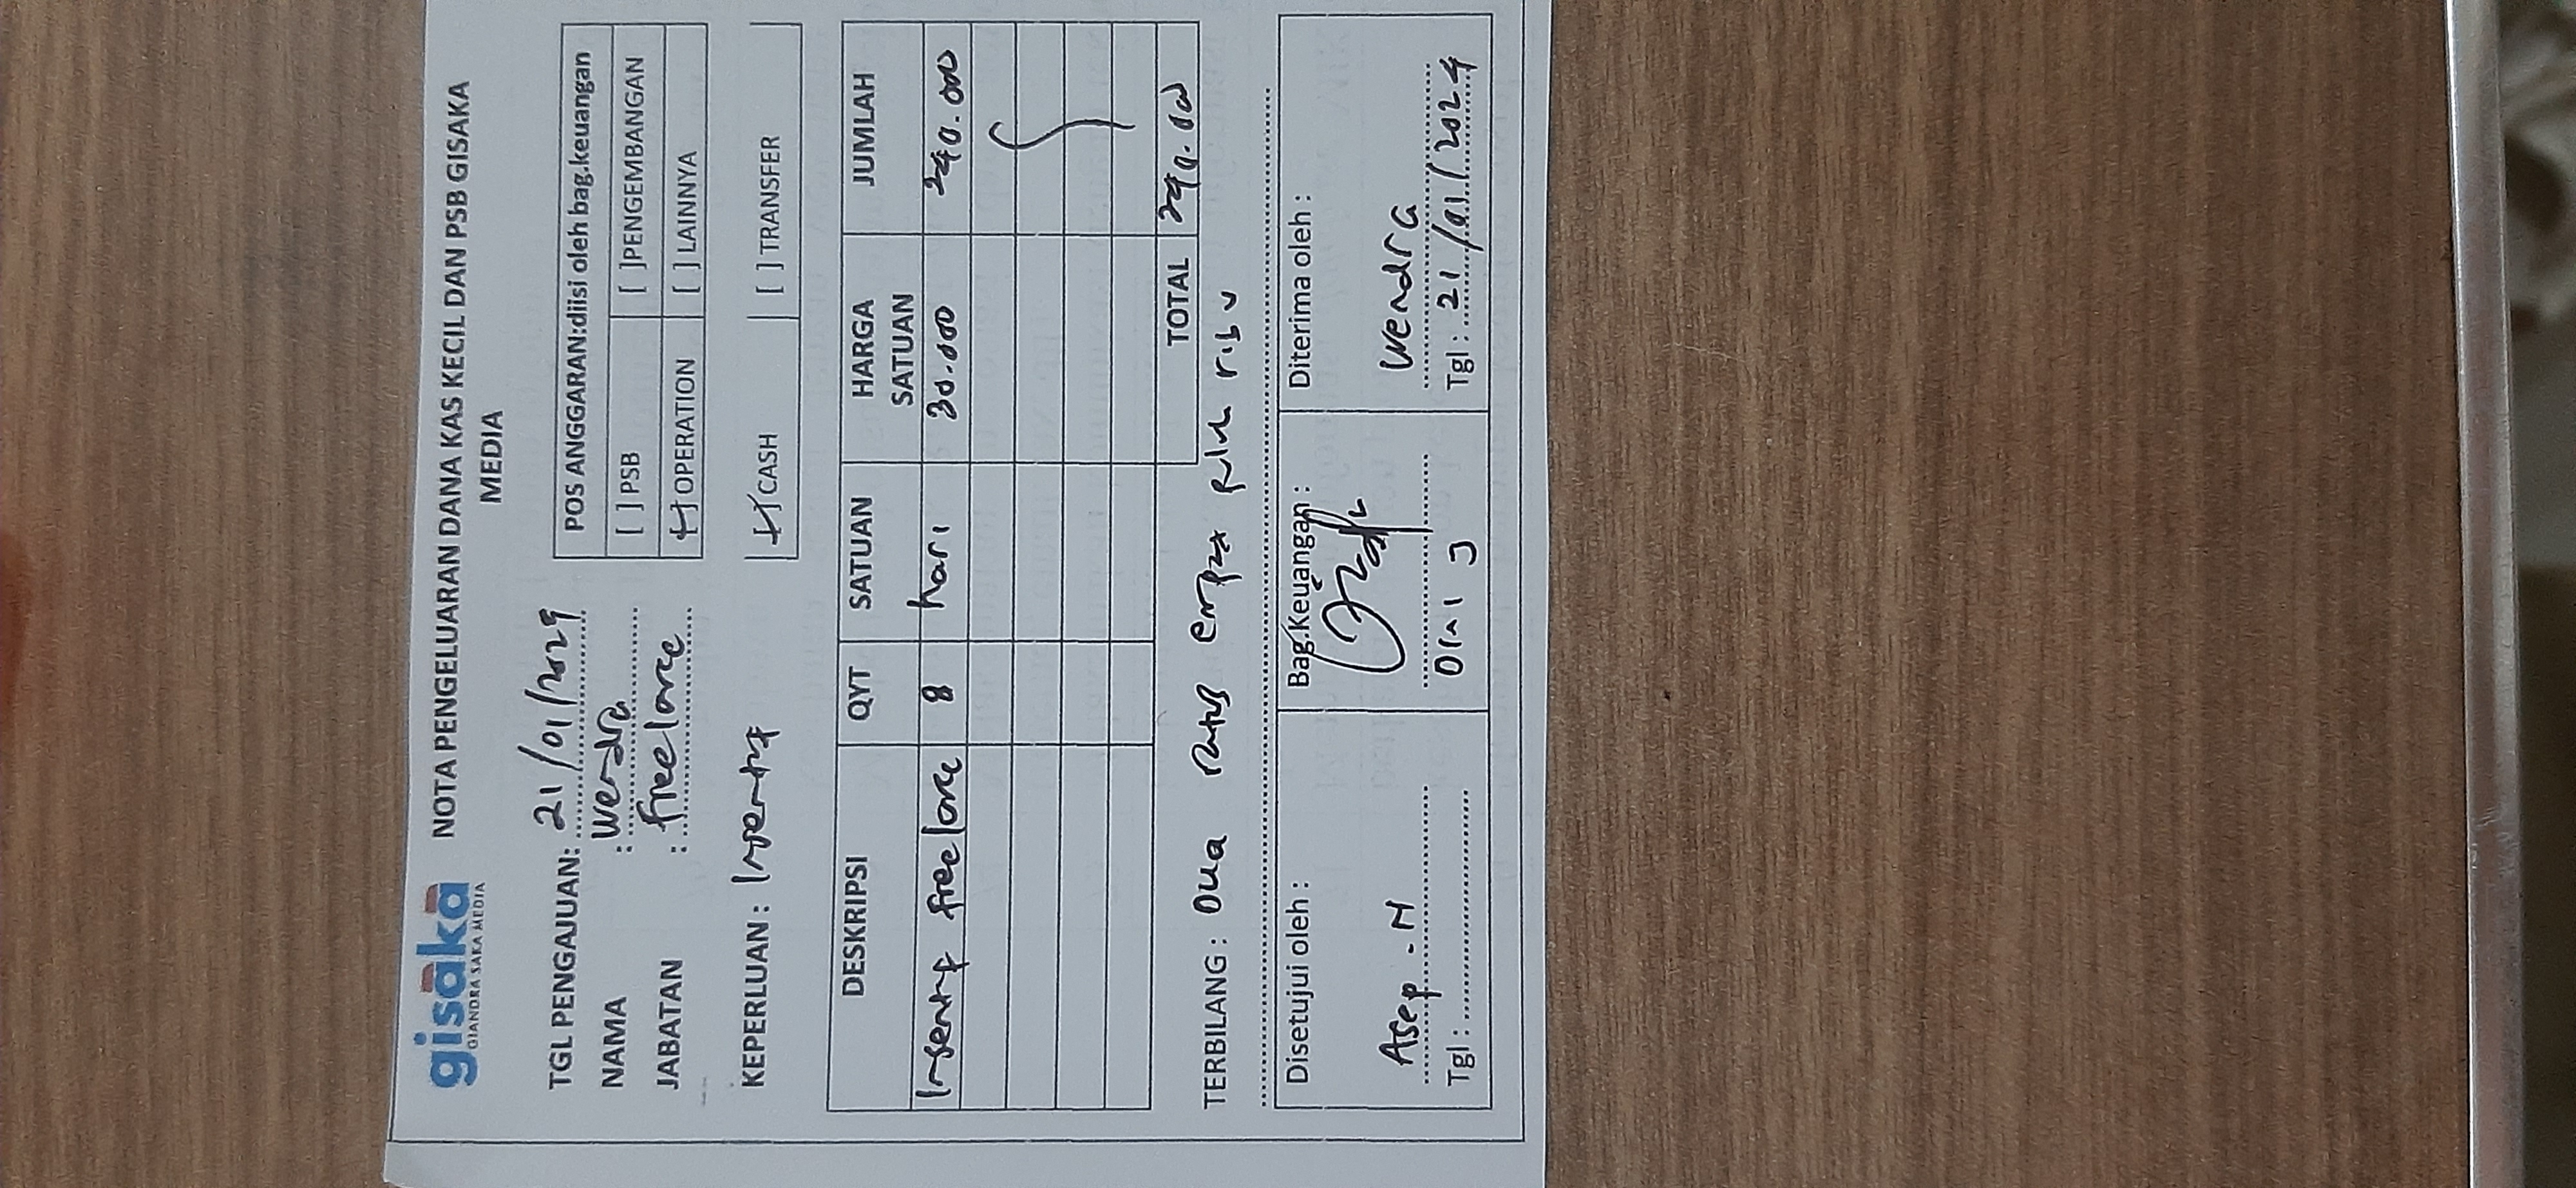 gisaka
GIANDRA SAKA MEDIA
NOTA PENGELUARAN DANA KAS KECIL DAN PSB GISAKA
MEDIA
TGL PENGAJUAN: 21/01/2024
NAMA : Wendra
JABATAN : freelance
POS ANGGARAN:diisi oleh bag.keuangan
[ ] PSB [ ]PENGEMBANGAN
[✓] OPERATION [ ] LAINNYA
KEPERLUAN : Insentif
[✓] CASH [ ] TRANSFER
DESKRIPSI QYT SATUAN HARGA SATUAN JUMLAH
Insentif freelance 8 hari 30.000 240.000
TOTAL 240.000
TERBILANG : Dua ratus empat puluh ribu
Disetujui oleh : Bag.Keuangan : Diterima oleh :
Asep . N Wendra
Tgl : Tgl : 21/01/2024